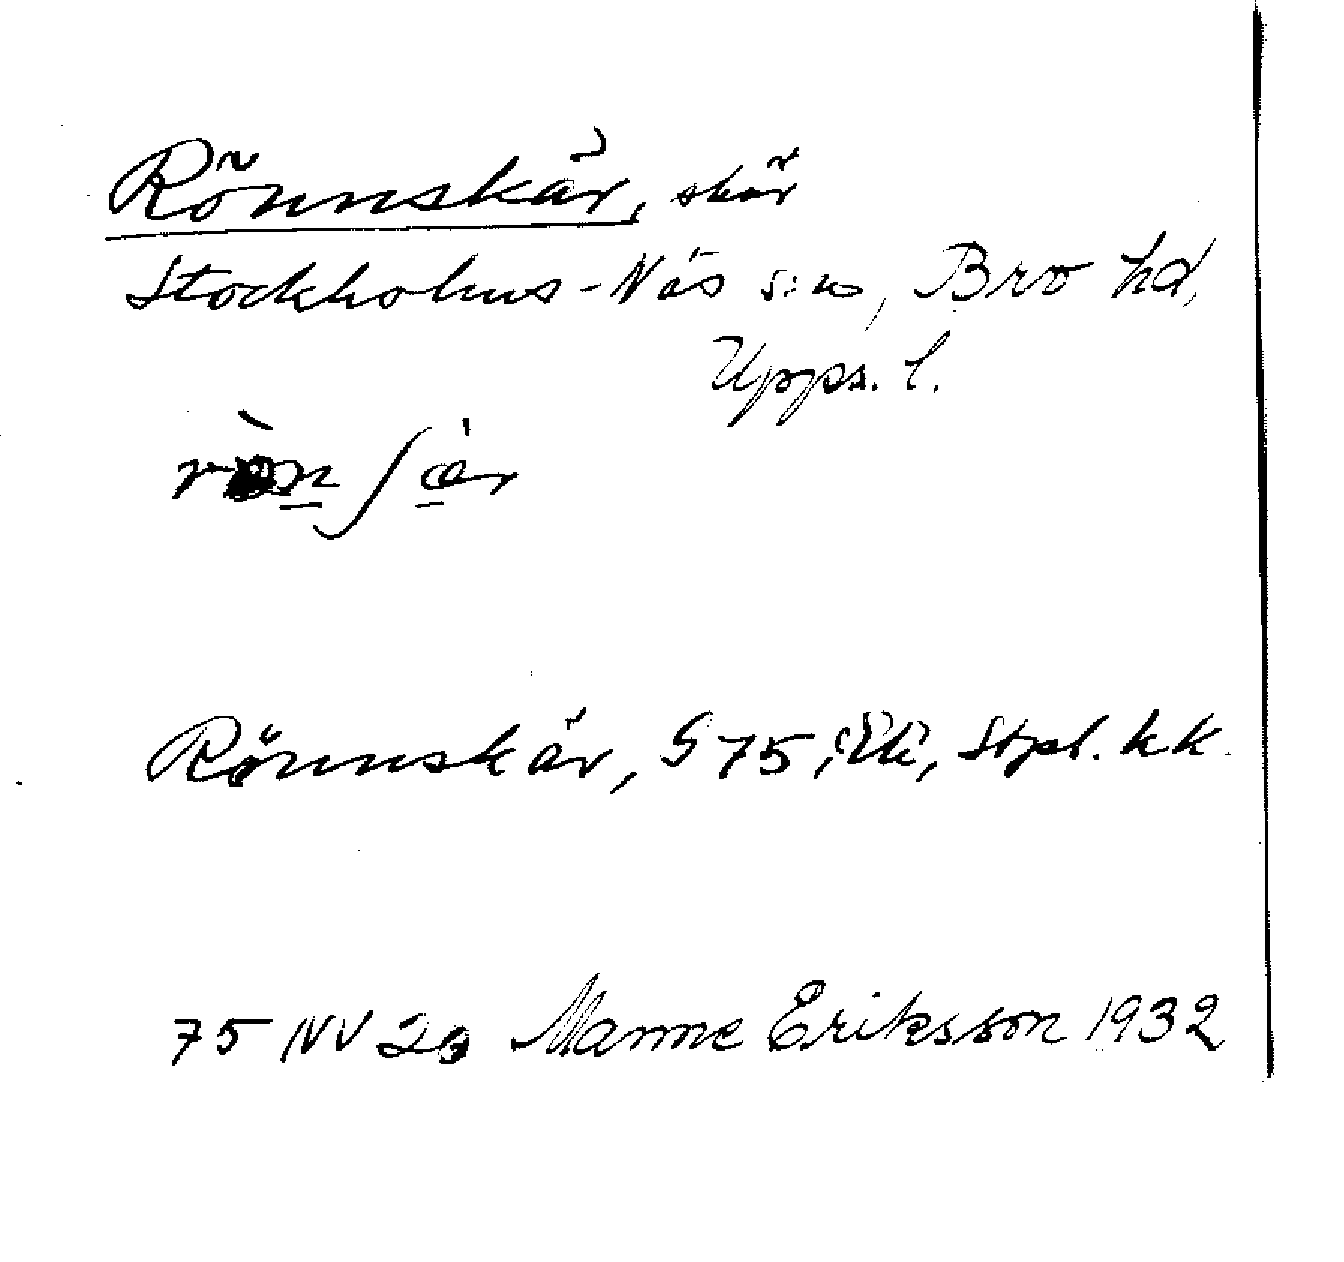 Rönnskär, skär
Stockholms-Näs s:n, Bro hd,
Upps. l.
Rönnskär, G 75, Ek, Stpl. kk.
75 NV 20 Manne Eriksson 1932